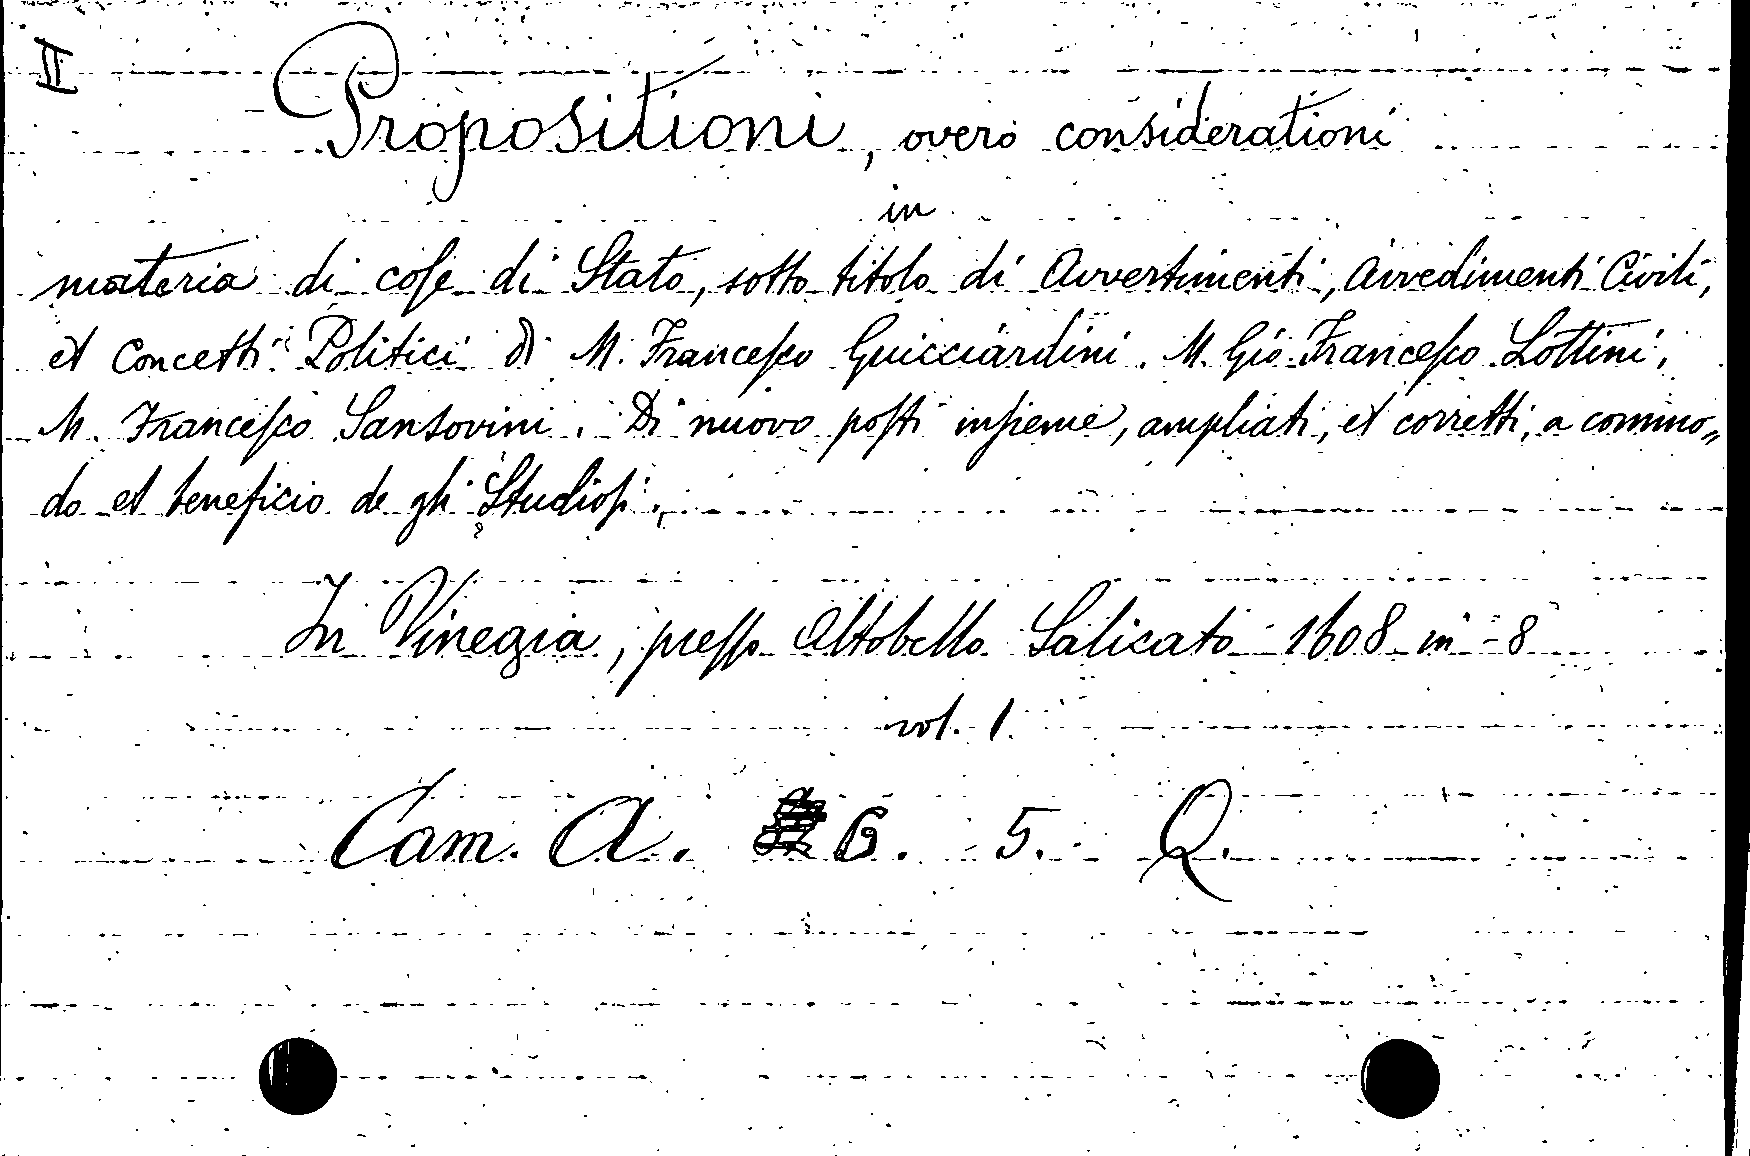 II
Propositioni, overo considerationi
in
materia di coſe di Stato, sotto titolo di Avvertimenti, Avvedimenti Civili,
et Concetti Politici di M. Franceſco Guicciardini. M. Gio. Franceſco Lottini,
M. Franceſco Sansovini. Di nuovo poſti inſieme, ampliati, et corretti, a commo„
do et beneficio de gli Studioſi.
In Vinegia, preſſo Altobello Salicato 1608 in-8
vol. 1.
Cam. A. 6. 5. Q.